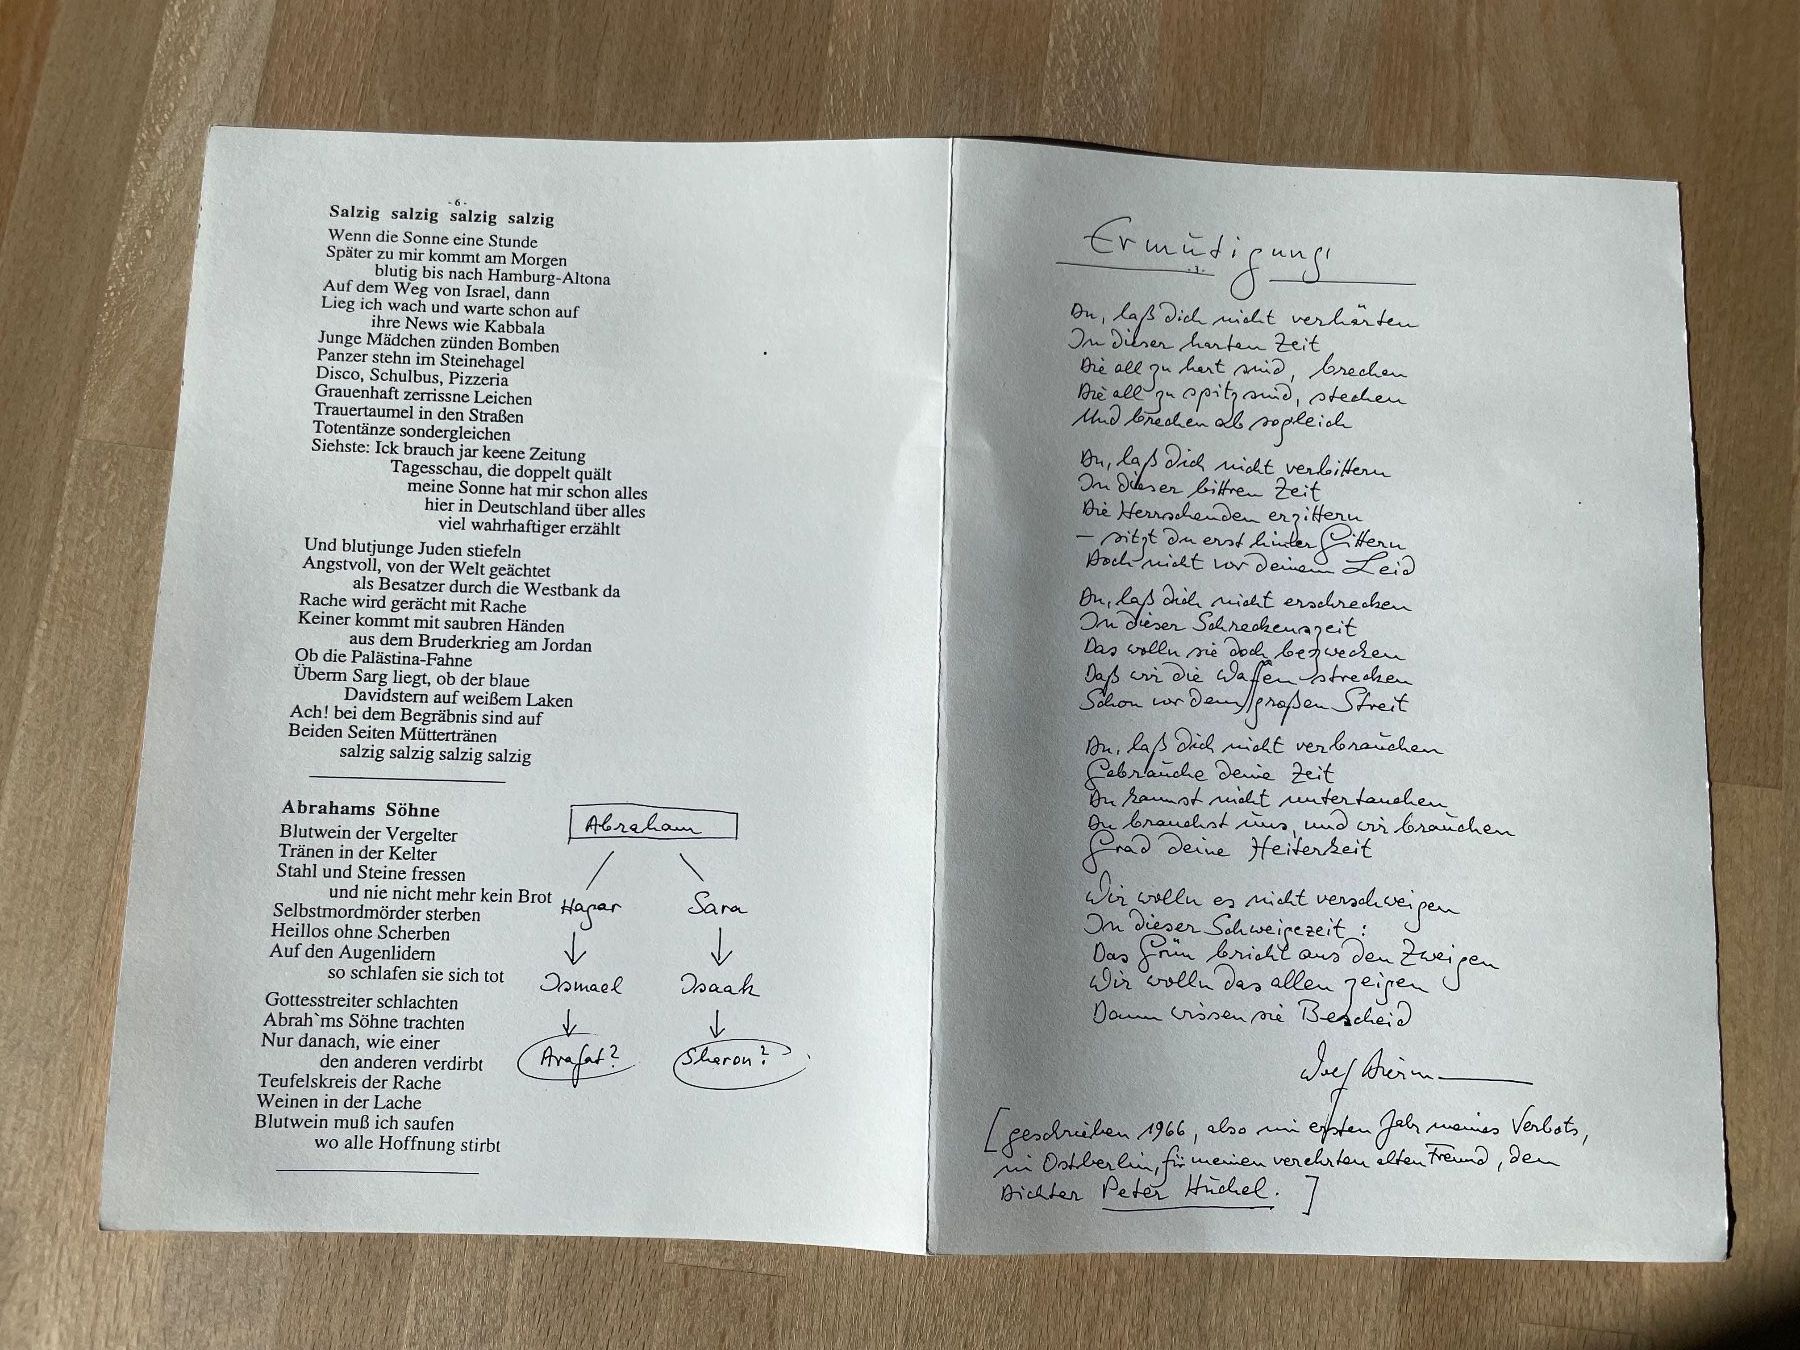 -6-
Salzig salzig salzig salzig
Wenn die Sonne eine Stunde
Später zu mir kommt am Morgen
blutig bis nach Hamburg-Altona
Auf dem Weg von Israel, dann
Lieg ich wach und warte schon auf
ihre News wie Kabbala
Junge Mädchen zünden Bomben
Panzer stehn im Steinehagel
Disco, Schulbus, Pizzeria
Grauenhaft zerrissne Leichen
Trauertaumel in den Straßen
Totentänze sondergleichen
Siehste: Ick brauch jar keene Zeitung
Tagesschau, die doppelt quält
meine Sonne hat mir schon alles
hier in Deutschland über alles
viel wahrhaftiger erzählt
Und blutjunge Juden stiefeln
Angstvoll, von der Welt geächtet
als Besatzer durch die Westbank da
Rache wird gerächt mit Rache
Keiner kommt mit saubren Händen
aus dem Bruderkrieg am Jordan
Ob die Palästina-Fahne
Überm Sarg liegt, ob der blaue
Davidstern auf weißem Laken
Ach! bei dem Begräbnis sind auf
Beiden Seiten Müttertränen
salzig salzig salzig salzig
Abrahams Söhne
Blutwein der Vergelter
Tränen in der Kelter
Stahl und Steine fressen
und nie nicht mehr kein Brot
Selbstmordmörder sterben
Heillos ohne Scherben
Auf den Augenlidern
so schlafen sie sich tot
Gottesstreiter schlachten
Abrah`ms Söhne trachten
Nur danach, wie einer
den anderen verdirbt
Teufelskreis der Rache
Weinen in der Lache
Blutwein muß ich saufen
wo alle Hoffnung stirbt
Abraham
Hagar Sara
Ismael Isaak
Arafat? Sharon?
Ermutigung
Du, laß dich nicht verhärten
In dieser harten Zeit
Die all zu hart sind, brechen
Die all zu spitz sind, stechen
Und brechen ab sogleich
Du, laß dich nicht verbittern
In dieser bittren Zeit
Die Herrschenden erzittern
– sitzt du erst hinter Gittern
Doch nicht vor deinem Leid
Du, laß dich nicht erschrecken
In dieser Schreckenszeit
Das wolln sie doch bezwecken
Daß wir die Waffen strecken
Schon vor dem großen Streit
Du, laß dich nicht verbrauchen
Gebrauche deine Zeit
Du kannst nicht untertauchen
Du brauchst uns, und wir brauchen
Grad deine Heiterkeit
Wir wolln es nicht verschweigen
In dieser Schweigezeit:
Das Grün bricht aus den Zweigen
Wir wolln das allen zeigen
Dann wissen sie Bescheid
Wolf Biermann
[geschrieben 1966, also im ersten Jahr meines Verbots,
in Ostberlin, für meinen verehrten alten Freund, dem
Dichter Peter Huchel.]